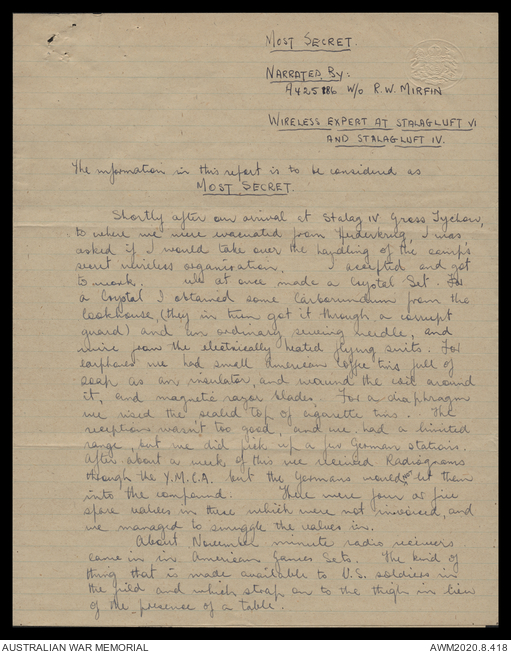 MOST SECRET.
NARRATED BY:
A425186 W/O R.W. MIRFIN
WIRELESS EXPERT AT STALAG LUFT VI
AND STALAG LUFT IV.
The information in this report is to be considered as
MOST SECRET.
Shortly after our arrival at Stalag IV Gross Tychow,
to where we were evacuated from Heydekrug, I was
asked if I would take over the handling of the camp's
secret wireless organisation. I accepted and got
to work. We at once made a Crystal Set. For
a Crystal I obtained some Carborundum from the
cookhouse, (they in turn got it through a corrupt
guard) and an ordinary sewing needle, and
wire from the electrically heated flying suits. For
earphones we had small American coffee tins full of
soap as an insulator, and wound the coil around
it, and magnetic razor blades. For a diaphragm
we used the sealed top of cigarette tins. The
receptions wasn't too good, and we had a limited
range, but we did pick up a few German stations.
After about a week of this we received Radiograms
through the Y.M.C.A. but the Germans would not let them
into the compound. There were four or five
spare valves in these which were not invoiced, and
we managed to smuggle the valves in.
About November minute radio receivers
came in in American Games Sets. The kind of
thing that is made available to U.S. soldiers in
the field and which strap on to the thigh in lieu
of the presence of a table.
AUSTRALIAN WAR MEMORIAL
AWM2020.8.418